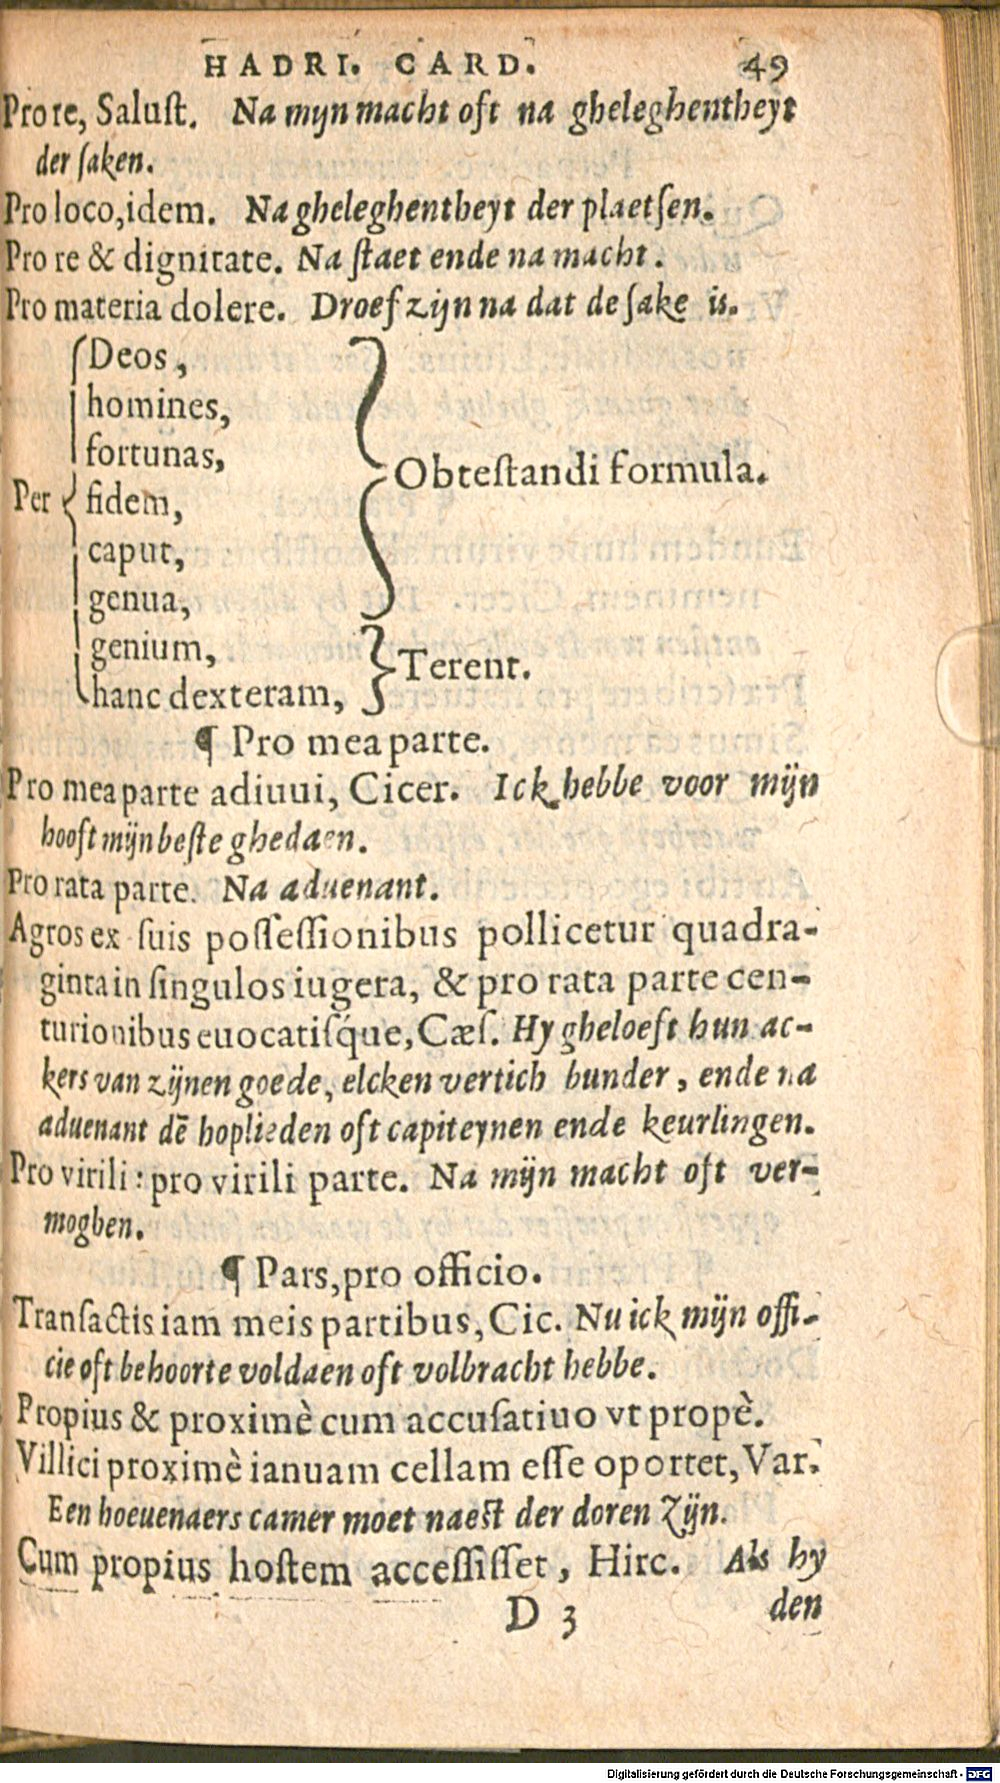 HADRI. CARD. 49
Pro re, Saluſt. Na mijn macht oft na gheleghentheyt
der ſaken.
Pro loco, idem. Na gheleghentheyt der plaetſen.
Pro re & dignitate. Na ſtaet ende na macht.
Pro materia dolere. Droef zijn na dat de ſake is.
Deos,
homines,
fortunas,
Obteſtandi formula.
Per fidem,
caput,
genua,
genium,
Terent.
hanc dexteram,
¶ Pro mea parte.
Pro mea parte adiuui, Cicer. Ick hebbe voor mijn
hooft mijn beſte ghedaen.
Pro rata parte. Na aduenant.
Agros ex ſuis poſſeſſionibus pollicetur quadra-
ginta in ſingulos iugera, & pro rata parte cen-
turionibus euocatiſq́ue, Cæſ. Hy gheloeft hun ac-
kers van zijnen goede, elcken vertich bunder, ende na
aduenant dē hoplieden oft capiteynen ende keurlingen.
Pro virili: pro virili parte. Na mijn macht oft ver-
moghen.
¶ Pars, pro officio.
Tranſactis iam meis partibus, Cic. Nu ick mijn offi-
cie oft behoorte voldaen oft volbracht hebbe.
Propius & proximè cum accuſatiuo vt propè.
Villici proximè ianuam cellam eſſe oportet, Var.
Een hoeuenaers camer moet naeſt der doren zijn.
Cum propius hoſtem acceſſiſſet, Hirc. Als hy
D 3 den
Digitalisierung gefördert durch die Deutsche Forschungsgemeinschaft - DFG